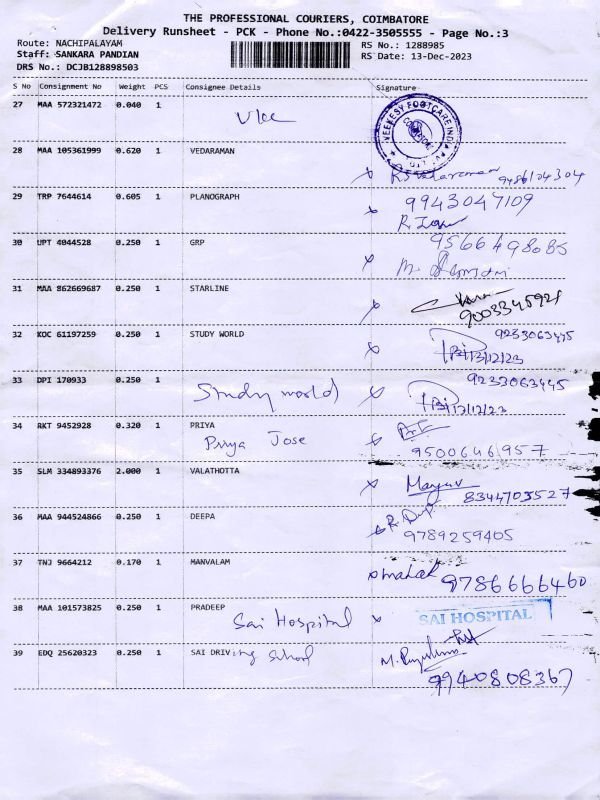 THE PROFESSIONAL COURIERS, COIMBATORE
Delivery Runsheet - PCK - Phone No.:0422-3505555 - Page No.:3
Route: NACHIPALAYAM
Staff: SANKARA PANDIAN
DRS No.: DCJB128898503
RS No.: 1288985
RS Date: 13-Dec-2023
S No Consignment No Weight PCS Consignee Details Signature
27 MAA 572321472 0.040 1
VEEKESY FOOTCARE INDIA PVT. LTD
28 MAA 105361999 0.620 1 VEDARAMAN
9486104304
29 TRP 7644614 0.605 1 PLANOGRAPH 9943047109
30 UPT 4044528 0.250 1 GRP 9566498085
31 MAA 862669687 0.250 1 STARLINE
9003345921
32 KOC 61197259 0.250 1 STUDY WORLD 9233063445
13/12/23
33 DPI 170933 0.250 1 9233063445
Study world
13/12/23
34 RKT 9452928 0.320 1 PRIYA
Priya Jose 9500646957
35 SLM 334893376 2.000 1 VALATHOTTA
8344703527
36 MAA 944524866 0.250 1 DEEPA
9789259405
37 TNJ 9664212 0.170 1 MANVALAM
9786666460
38 MAA 101573825 0.250 1 PRADEEP
Sai Hospital SAI HOSPITAL
39 EDQ 25620323 0.250 1 SAI DRIVing School
9940808367